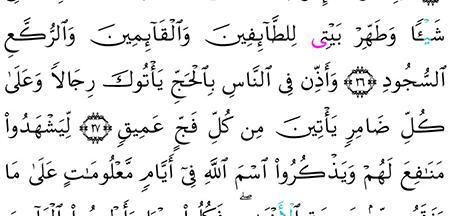 شَيْـًٔا وَطَهِّرْ بَيْتِىَ لِلطَّآئِفِينَ وَٱلْقَآئِمِينَ وَٱلرُّكَّعِ
ٱلسُّجُودِ ٢٦ وَأَذِّن فِى ٱلنَّاسِ بِٱلْحَجِّ يَأْتُوكَ رِجَالًا وَعَلَىٰ
كُلِّ ضَامِرٍ يَأْتِينَ مِن كُلِّ فَجٍّ عَمِيقٍ ٢٧ لِّيَشْهَدُوا۟
مَنَـٰفِعَ لَهُمْ وَيَذْكُرُوا۟ ٱسْمَ ٱللَّهِ فِىٓ أَيَّامٍ مَّعْلُومَـٰتٍ عَلَىٰ مَا